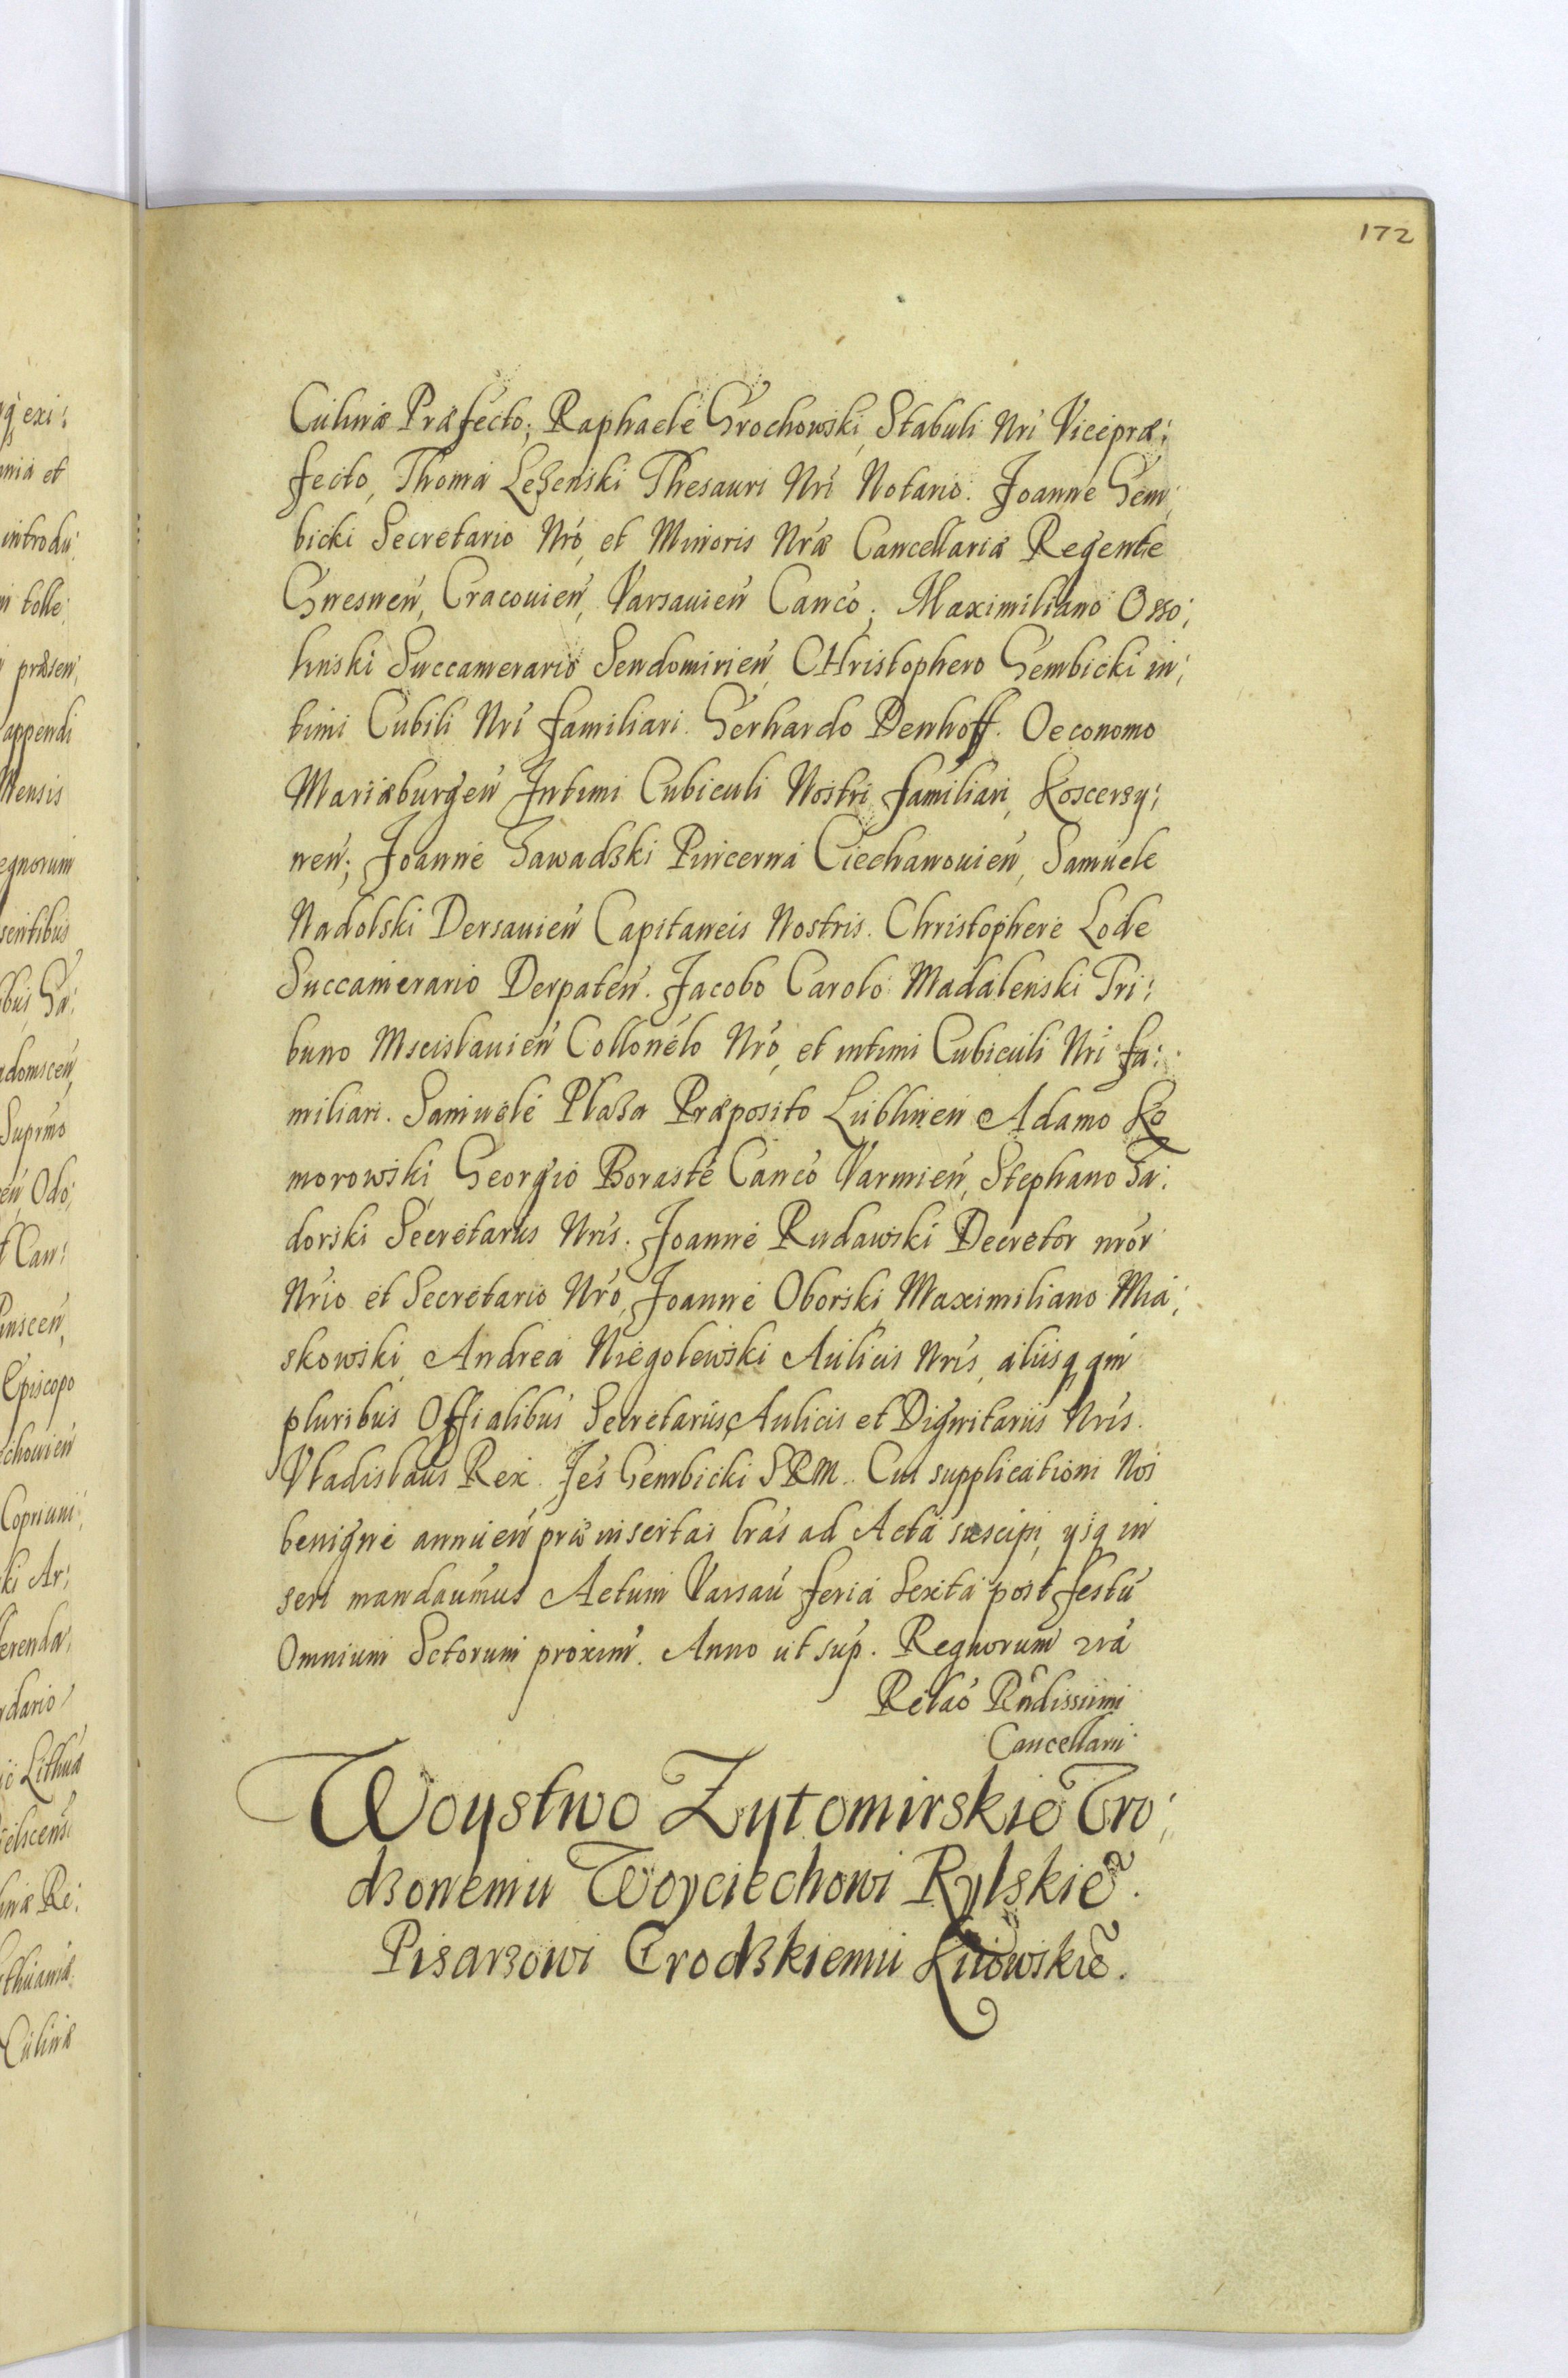 172
Culinæ Præfecto; Raphaele Grochowski, Stabuli Nri Vicepræ:
fecto, Thoma Leżenski Thesauri Nri Notario. Joanne Gem:
bicki Secretario Nro, et Minoris Nræ Cancellariæ Regente
Gnesnen, Cracouien, Varsauien Canco; Maximiliano Osso:
linski Succamerario Sendomirien, CHristophero Gembicki in:
timi Cubili Nri familiari. Gerhardo Denhoff. Oeconomo
Mariæburgen Intimi Cubiculi Nostri familiari, Koscerzy:
nen; Joanne Zawadzki Pincerna Ciechanouien, Samuele
Nadolski Dersauien Capitaneis Nostris. Christophere Lode
Succamerario Derpaten. Jacobo Carolo Madalenski Tri:
buno Mscislauien Collonelo Nro, et intimi Cubiculi Nri fa:
miliari. Samuele Plaza Præposito Lublinen Adamo Ko
morowski, Georgio Boraste Canco Varmien, Stephano Za:
dorski Secretariis Nris. Joanne Rudawski Decretor nror
Nrio et Secretario Nro, Joanne Oborski, Maximiliano Mia:
skowski, Andrea Niegolewski Aulicis Nris, aliisq qm
pluribus Offialibus Secretariis, Aulicis et Dignitariis Nris.
Vladislaus Rex. Jes Gembicki SRM. Cui supplicationi Nos
benigne annuen præinsertas lras ad Acta suscipi, ysq in
seri mandauimus Actum Varsau feria Sexta post festu
Omnium Sctorum proxim. Anno ut sup. Regnorum nra
Relao Rndissimi
Cancellarii
Woystwo Zytomirskie Vro:
dzonemu Woyciechowi Rylskie.
Pisarzowi Grodzkiemu Kiiowskie.